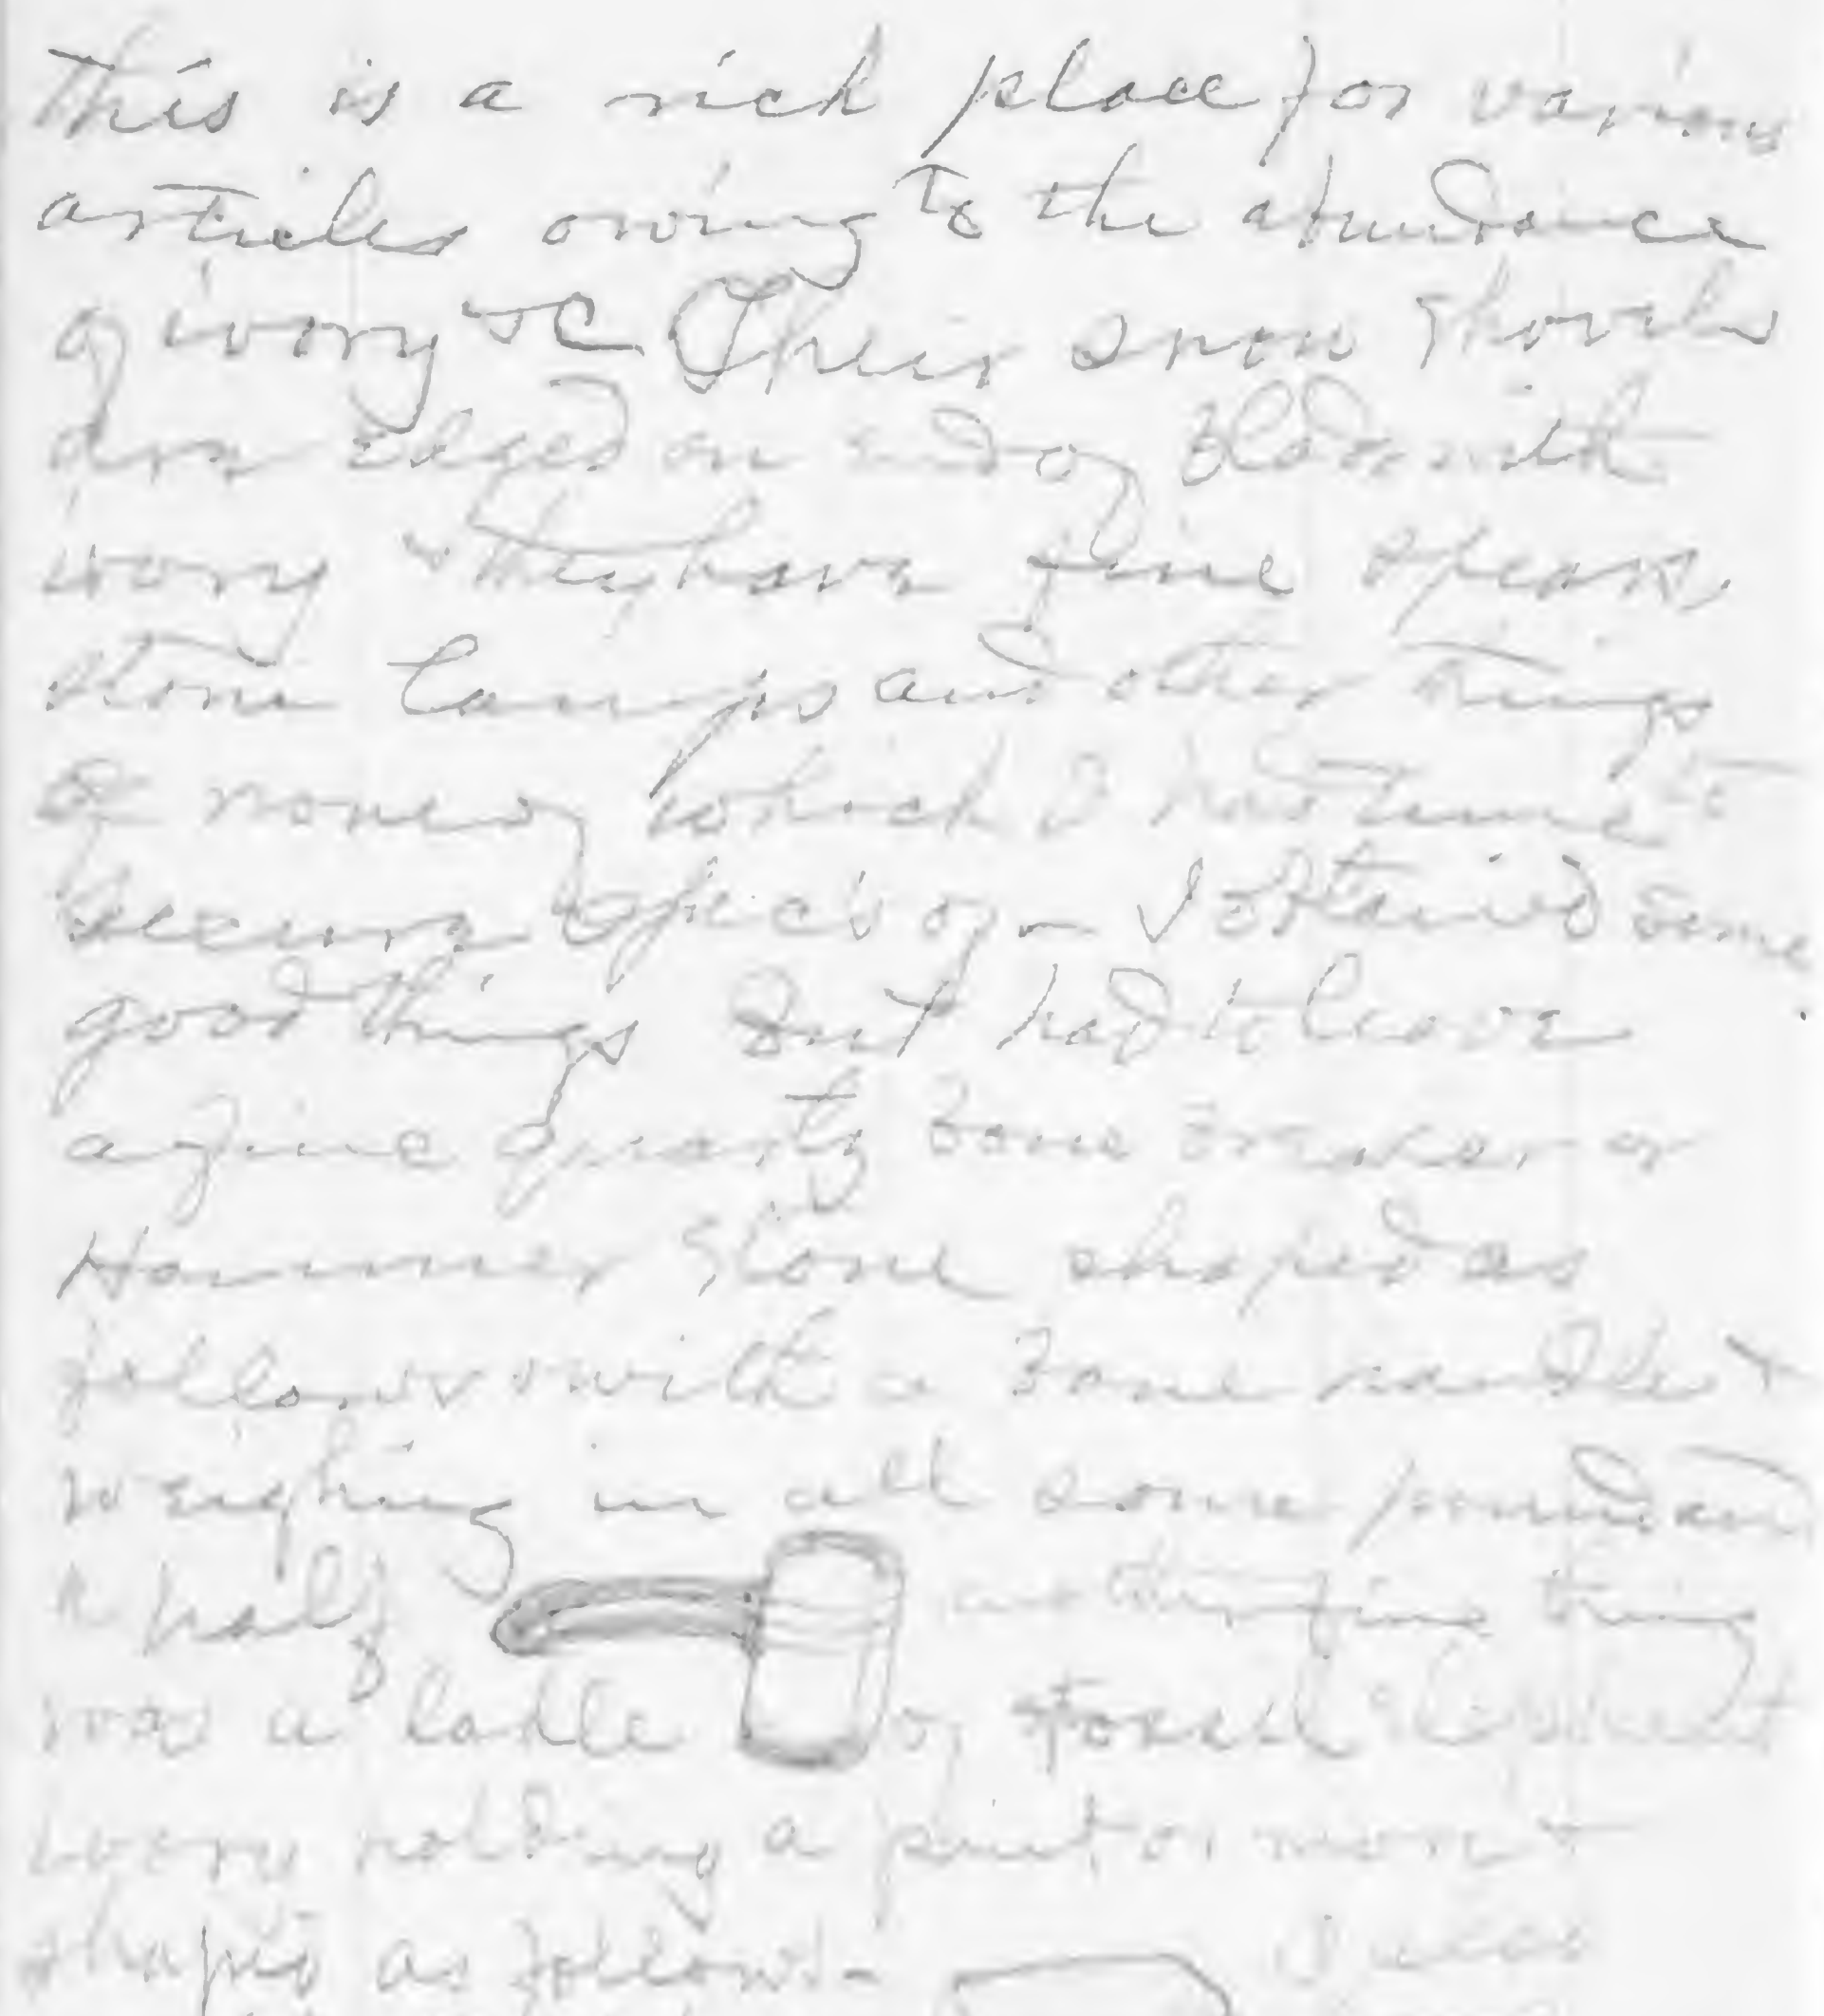 This is a rich place for various
articles owing to the abundance
of ivory &c Their snow shovels
are edged on end of blade with
ivory & they have fine spears,
stone lamps and other things
of none of which I had time to
secure spec's of - I obtained some
good things but had to leave
a fine quartz bone breaker or
Hammer Stone shaped as
follows with a bone handle &
weighing in all some pound and
a half another fine thing
was a ladle of fossil elephant
ivory holding a pint or more &
shaped as follows - I was